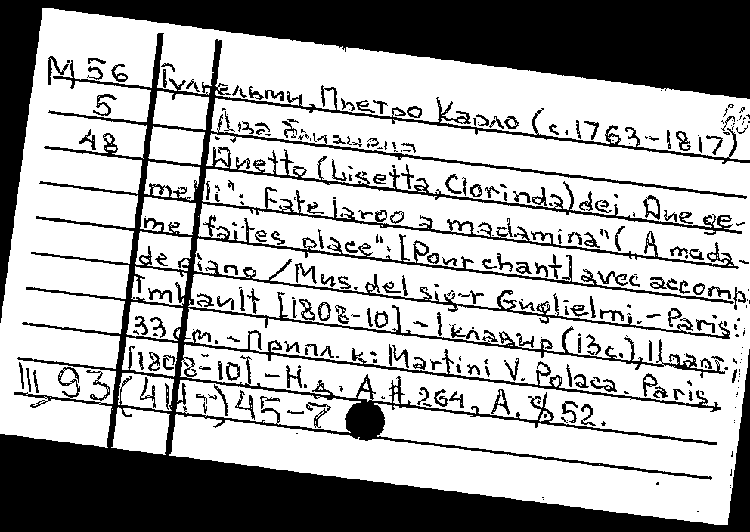 М 56 Гульельми, Пьетро Карло (c. 1763-1817)
5 Два близнеца
48 Duetto (Lisetta, Clorinda) dei „Due ge-
melli": „Fate largo a madamina" („A mada-
me faites place": [Pour chant] avec accomp.
de piano / Mus. del sig-r Guglielmi. - Paris:
Imbault, [1808-10]. - 1 клавир (13 c.), 11 парт.;
33 cm. - Прилл. к: Martini V. Polaca. Paris,
[1808-10]. - Н. д. А. #. 264, А. § 52.
III 93 (4Ит) 45-7